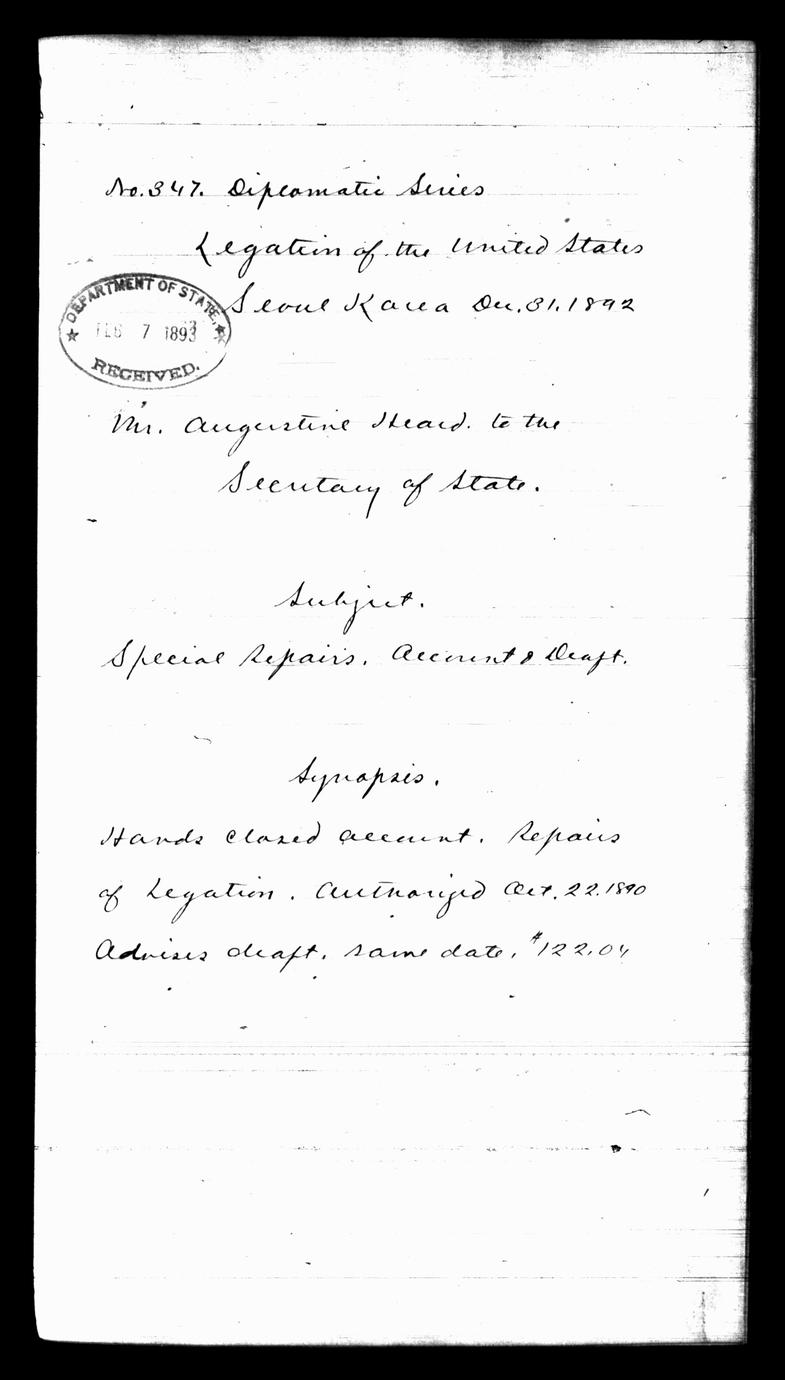 No. 347. Diplomatic Series
Legation of the United States
Seoul Korea Dec. 31. 1892
DEPARTMENT OF STATE,
FEB 7 1893
RECEIVED.
Mr. Augustine Heard. to the
Secretary of State.
Subject.
Special Repairs. Account & Draft.
Synopsis.
Hands closed account. Repairs
of Legation. Authorized Oct. 22. 1890
Advises draft. same date. $122.04